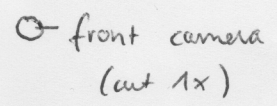 front camera
(cut 1x)